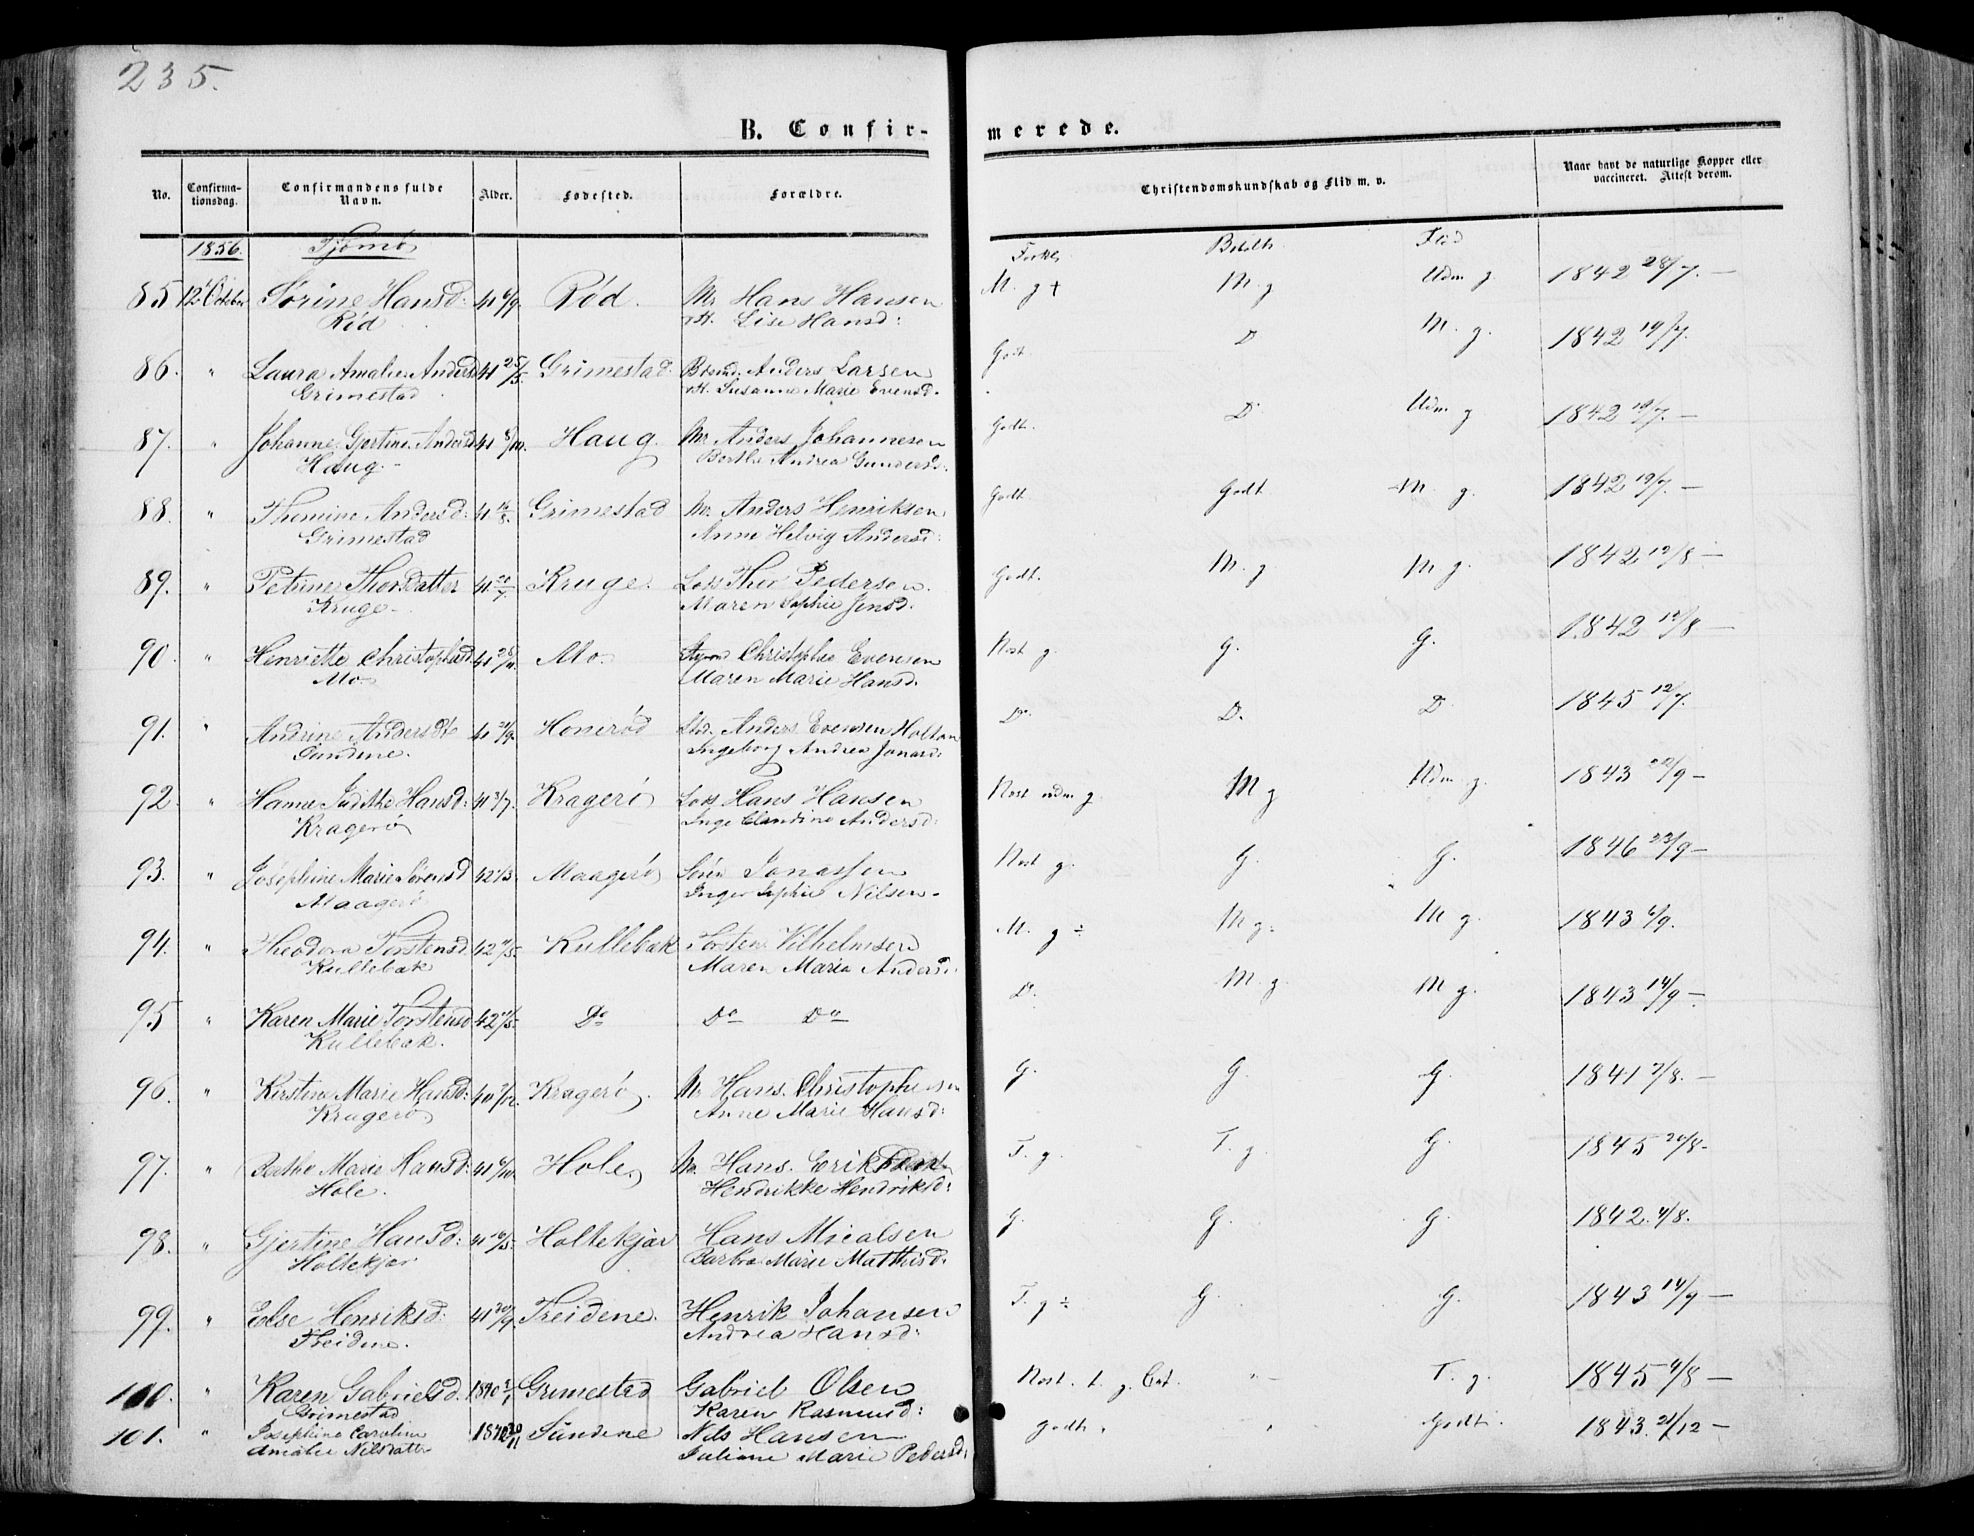 235.
B. Confir- merede.
No. Confirma-tionsdag. Confirmandens fulde Navn. Alder. Fødested. Forældre. Christendomskundskab og Flid m. v. Naar havt de naturlige Kopper eller vaccineret. Attest derom.
1856. Tjømø Flid
85 12 October Sørine Hansd: 41 6/9. Rød. Mr Hans Hansen M. g + M. g Udm g. 1842 28/7. -
Rød Lise Hansd:
86. " Laura Amalie Andersd 41 25/5. Grimestad Anders Larsen Godt D M. g. 1842 19/7.
Grimestad Susanne Marie Evensd.
87. " Johanne Gjertine Andersd 41 Haug. Mr Anders Johannesen Godt. D Udm g 1842 19/7 -
Haug - Berthe Andrea Gundersd.
88. " Thomine Andersd: 41 Grimestad Mr Anders Henriksen Godt Godt M. g. 1842 19/7. -
Grimestad Anne Helvig Andersd:
89. " Petrine Thorsdatter 41. Kruge. Lods Thor Pedersen. Godt. M. g M g. 1842 12/8 -
Kruge - Maren Sophie Jensd.
90. " Henriette Christophersd 41 Mo. Christopher Evensen Next g. G. G. 1842 12/8 -
Mo. Maren Marie Hansd.
91. " Andrine Andersdt 41 Honerød Anders Evensen Holtan Do D. D 1845 12/7.
Sundene. Ingeborg Andrea Jonasd:
92 " Hanna Judithe Hansd: 41 3/7. Kragerø Lods Hans Hansen Next udm g. M g Udm g. 1843 22/9 -
Kragerø Inge Claudine Andersd:
93. " Josephine Marie Sørensd 42 1/3. Maagerø Søren Jonassen Next g. G. G. 1846 23/9 -
Maagerø Inger Sophie Nilsen.
94. " Theodora Torstensd. 42 Kullebak Torsten Vilhelmsen M. g ÷ M g. M g. 1843 6/9.
Kullebak Maren Maria Andersd:
95 " Karen Marie Torstensd 42 Do Do Do D. M. g M g. 1843 14/9 -
Kullebak.
96. " Kirstine Marie Hansd: 40 Kragerø. Mr Hans Christophersen G. G. G. 1841 7/8. -
Kragerø Anne Marie Hansd:
97. " Berthe Marie Hansd: 41 6/10. Hole Mr. Hans Eriksen T. g. T. g. G. 1845 20/8 -
Hole. Hendrikke Hendriksd:
98. " Gjertine Hansd: 41 Holtekjær Hans Micalsen G. G. G. 1842. 4/8.
Holtekjær Barbra Marie Mathisd.
99. " Else Henriksd: 41 20/9. Treidene. Henrik Johansen T. g ÷ G. G. 1843 14/9 -
Treidene. Andrea Hansd:
100. " Karen Gabrielsd. 1840 Grimestad Gabriel Olsen Next. t. g. " T. g. 1845 4/8 -
Grimestad Karen Rasmusd:
101. " Josephine Caroline Sundene Nils Hansen Godt. " Godt. 1843. 21/12 -
Amalie Nilsdatter Juliane Marie Pedersd: